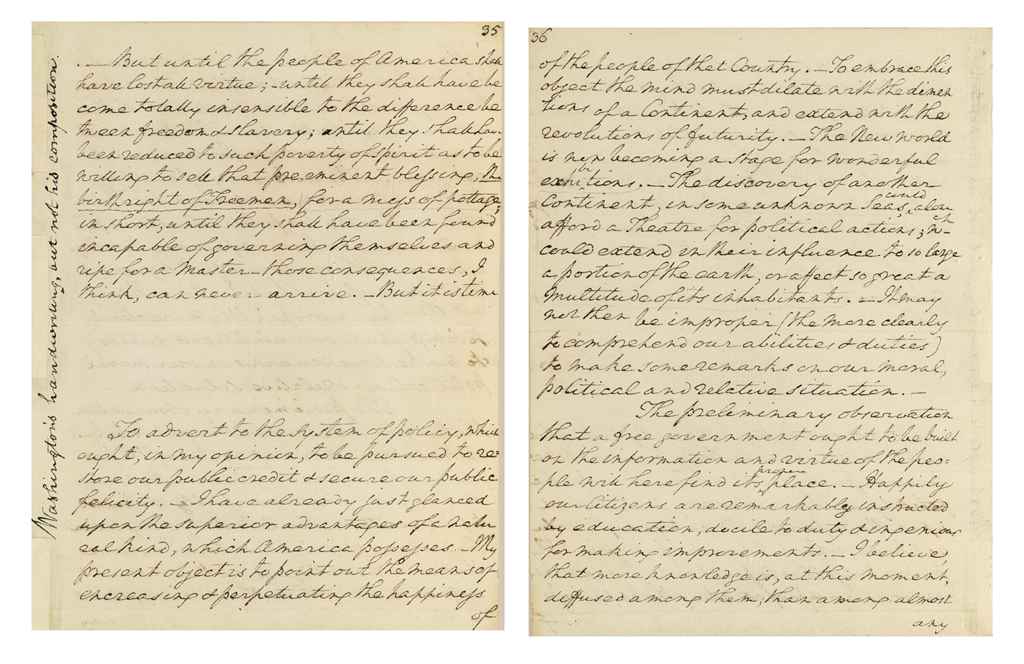 35
Washington's handwriting, but not his composition.
. — But until the people of America shall
have lost all virtue; — until they shall have be
come totally insensible to the difference be
tween freedom & slavery; until they shall ha
been reduced to such poverty of spirit as to be
willing to sell that pre,eminent blessing, the
birthright of Freemen, for a mess of pottage;
in short, until they shall have been found
incapable of governing themselves and
ripe for a master — those consequences, I
think, can never arrive. — But it is time
To advert to the system of policy, which
ought, in my opinion, to be pursued to re=
store our public credit & secure our public
felicity. — I have already just glanced
upon the superior advantages of a natu
ral kind, which America possesses. — My
present object is to point out the means of
encreasing & perpetuating the happiness
of
36
of the people of that Country. — To embrace this
object the mind must dilate with the dimen
tions of a Continent, and extend with the
revolutions of futurity. — The New world
is now becoming a stage for wonderful
exhibitions. — The discovery of another
Continent, in some unknown Seas, could alone
afford a Theatre for political actions, wch
could extend in their influence to so large
a portion of the earth, or affect so great a
multitude of its inhabitants. — It may
not then be improper (the more clearly
to comprehend our abilities & duties)
to make some remarks on our moral,
political and relative situation. —
The preliminary observation
that a free government ought to be built
on the information and virtue of the peo=
ple will here find its proper place. — Happily
our Citizens are remarkably instructed
by education, docile to duty & ingenious
for making improvements. — I believe,
that more knowledge is, at this moment,
diffused among them, than among almost
any